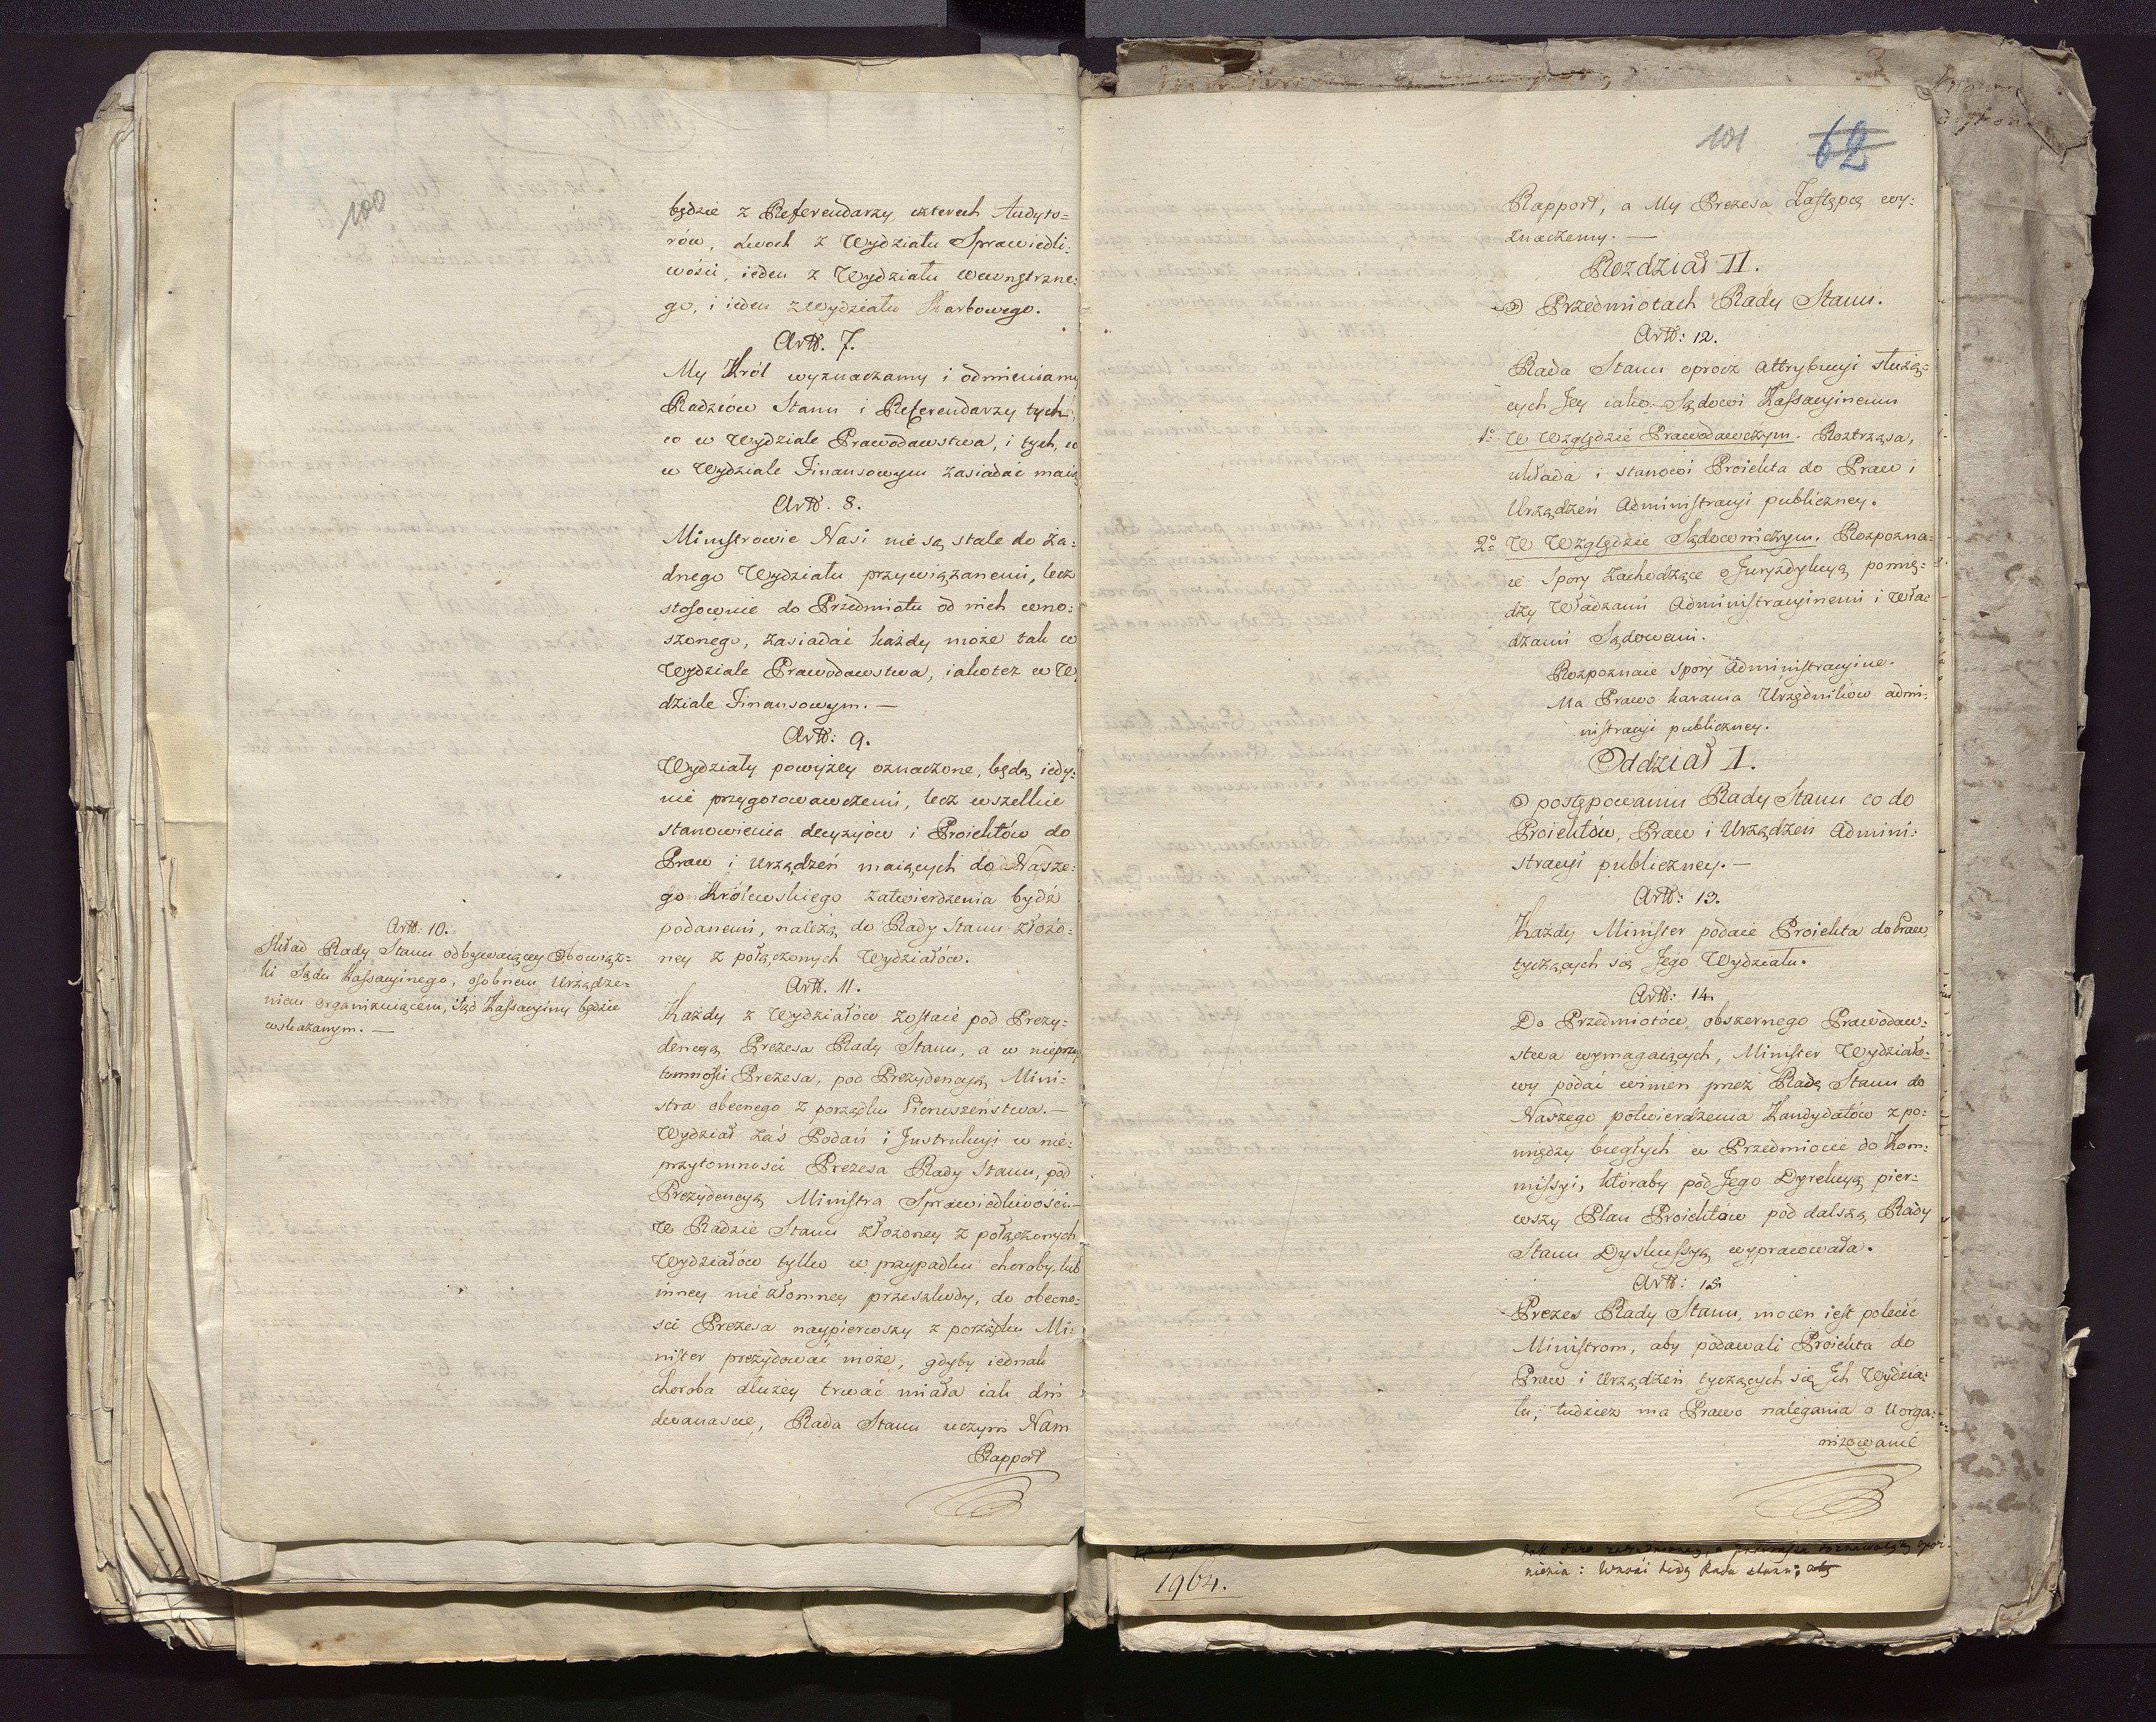 100
będzie z Referendarzy, czterech Audyto=
rów, dwoch z Wydziału Sprawiedli:
wości, ieden z Wydziału wewnętrzne:
go, i ieden z Wydziału Skarbowego.
Artt. 7.
My Król wyznaczamy i odmieniamy
Radzców Stanu i Referendarzy tych,
co w Wydziale Prawodawstwa, i tych, co
w Wydziale Finansowym zasiadać maią
Artt. 8.
Ministrowie Nasi nie są stale do ża=
dnego Wydziału przywiązanemi, lecz
stosownie do Przedmiotu od nich wno:
szonego, zasiadać każdy może tak w
Wydziale Prawodawstwa, iako też w Wy
dziale Finansowym. —
Artt: 9.
Wydziały powyżey oznaczone, będą iedy:
nie przygotowawczemi, lecz wszelkie
stanowienia decyzyów i Proiektów do
Praw i Urządzeń maiących do Nasze:
go Królewskiego zatwierdzenia bydź
podanemi, należą do Rady Stanu złożo:
ney z połączonych Wydziałów.
Artt: 10.
Skład Rady Stanu odbywaiącey Obowiąz=
ki Sądu Kassacyinego, osobnem Urządze=
niem organizuiącem, Sąd Kassacyiny będzie
wskazanym. —
Artt. 11.
Każdy z Wydziałów zostaie pod Prezy:
dencyą Prezesa Rady Stanu, a w nieprzy
tomności Prezesa, pod Prezydencyą Mini:
stra obecnego z porządku Pierwszeństwa. —
Wydział zaś Podań i Instrukcyi w nie:
przytomności Prezesa Rady Stanu, pod
Prezydencyą Ministra Sprawiedliwości. —
W Radzie Stanu złożoney z połączonych
Wydziałów tylko w przypadku choroby, lub
inney nie złomney przeszkody, do obecno:
ści Prezesa naypierwszy z porządku Mi:
nister prezydować może, gdyby iednak
choroba dłużey trwać miała iak dni
dwanaście, Rada Stanu uczyni Nam
Rapport
101 62
Rapport, a My Prezesa Zastępcę wy:
znaczemy. —
Rozdział II.
O Przedmiotach Rady Stanu.
Artt: 12.
Rada Stanu oprocz attrybucyi służą=
cych Jey iako Sądowi Kassacyinemu
1o W Względzie Prawodawczym. Roztrząsa,
układa i stanowi Proiekta do Praw i
Urządzeń Administracyi publiczney.
2o W Względzie Sądowniczym. Rozpozna=
ie Spory zachodzące o Juryzdykcyą pomię=
dzy Władzami Administracyinemi i Wła:
dzami Sądowemi.
Rozpoznaie spory Administracyine.
Ma Prawo karania Urzędników admi:
nistracyi publiczney.
Oddział I.
O postępowaniu Rady Stanu co do
Proiektów, Praw i Urządzeń Admini:
stracyi publiczney. —
Artt: 13.
Każdy Minister podaie Proiekta do Praw,
tyczących się Jego Wydziału.
Artt: 14.
Do Przedmiotów, obszernego Prawodaw:
stwa wymagaiących, Minister Wydziało:
wy podać winien przez Radę Stanu do
Naszego potwierdzenia Kandydatów z po:
między biegłych w Przedmiocie do Kom:
missyi, któraby pod Jego Dyrekcyą pier=
wszy Plan Proiektów pod dalszą Rady
Stanu Dyskussyą wypracowała.
Artt: 15.
Prezes Rady Stanu, mocen iest polecić
Ministrom, aby podawali Proiekta do
Praw i Urządzeń tyczących się Ich Wydzia:
łu, tudzież ma Prawo nalegania o Uorga:
nizowanie
1964.
nienia: Wnosi tedy Rada Stanu; aby